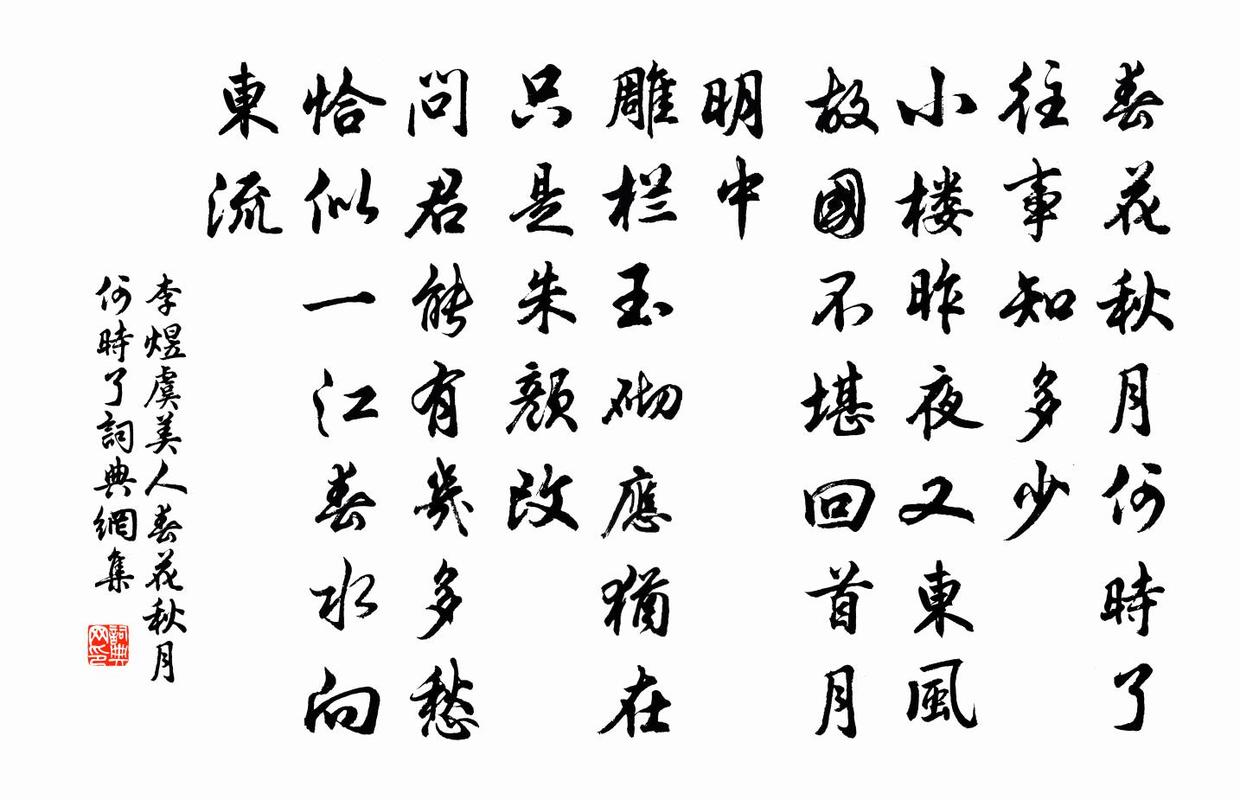 春花秋月何時了
往事知多少
小楼昨夜又東風
故國不堪回首月
明中
雕栏玉砌應猶在
只是朱顏改
問君能有幾多愁
恰似一江春水向
東流
李煜虞美人春花秋月
何時了詞典網集
詞典
网印